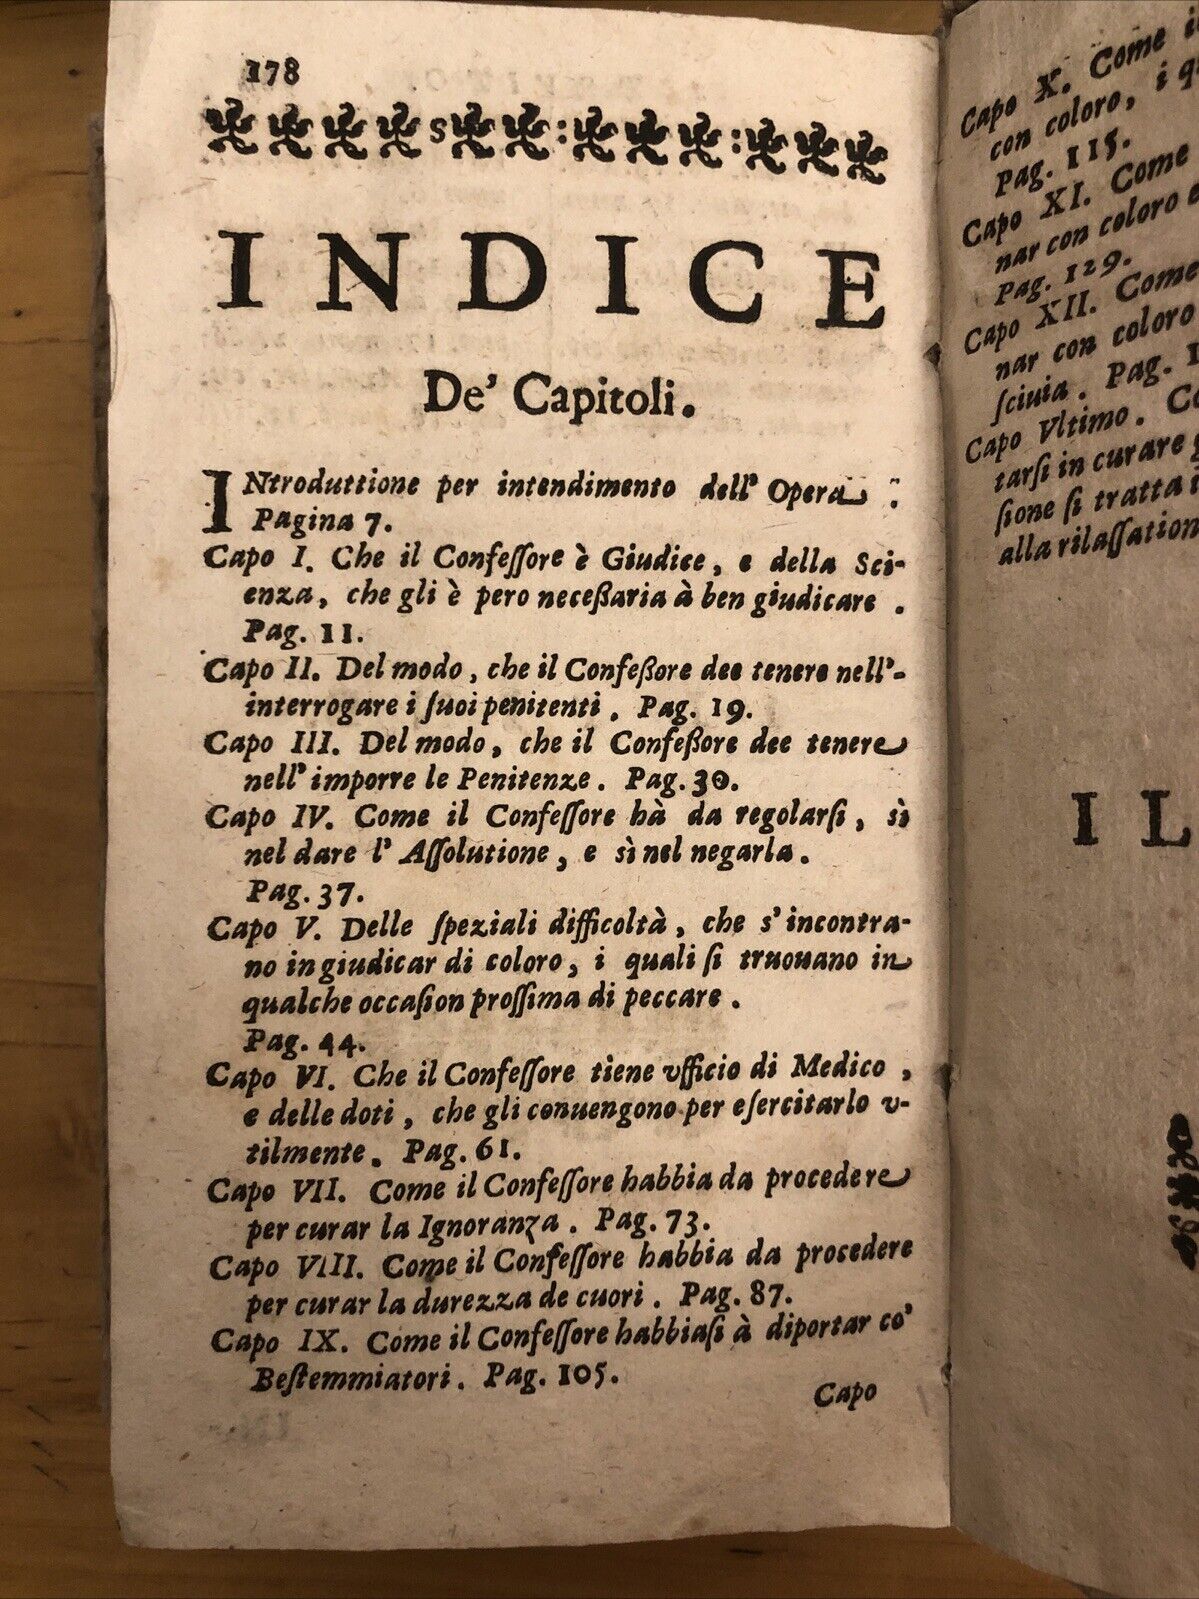 178
INDICE
De' Capitoli.
INtroduttione per intendimento dell' Opera :
Pagina 7.
Capo I. Che il Confeſſore è Giudice, e della Sci-
enza, che gli è pero neceßaria à ben giudicare .
Pag. 11.
Capo II. Del modo, che il Confeßore dee tenere nell'-
interrogare i ſuoi penitenti. Pag. 19.
Capo III. Del modo, che il Confeßore dee tenere
nell' imporre le Penitenze. Pag. 30.
Capo IV. Come il Confeſſore hà da regolarſi, sì
nel dare l' Aſſolutione, e sì nel negarla.
Pag. 37.
Capo V. Delle ſpeziali difficoltà, che s' incontra-
no in giudicar di coloro, i quali ſi truouano in
qualche occaſion proſſima di peccare .
Pag. 44.
Capo VI. Che il Confeſſore tiene vfficio di Medico ,
e delle doti, che gli conuengono per eſercitarlo v-
tilmente. Pag. 61.
Capo VII. Come il Confeſſore habbia da procedere
per curar la Ignoranza. Pag. 73.
Capo VIII. Come il Confeſſore habbia da procedere
per curar la durezza de cuori. Pag. 87.
Capo IX. Come il Confeſſore habbiaſi à diportar co'
Beſtemmiatori. Pag. 105.
Capo
Capo X. Come
con coloro, i
Pag. 115.
Capo XI. Come
nar con coloro
Pag. 129.
Capo XII. Come
nar con coloro
ſciuia. Pag.
Capo Vltimo.
tarſi in curare
ſione ſi tratta
alla rilaſſation
I L